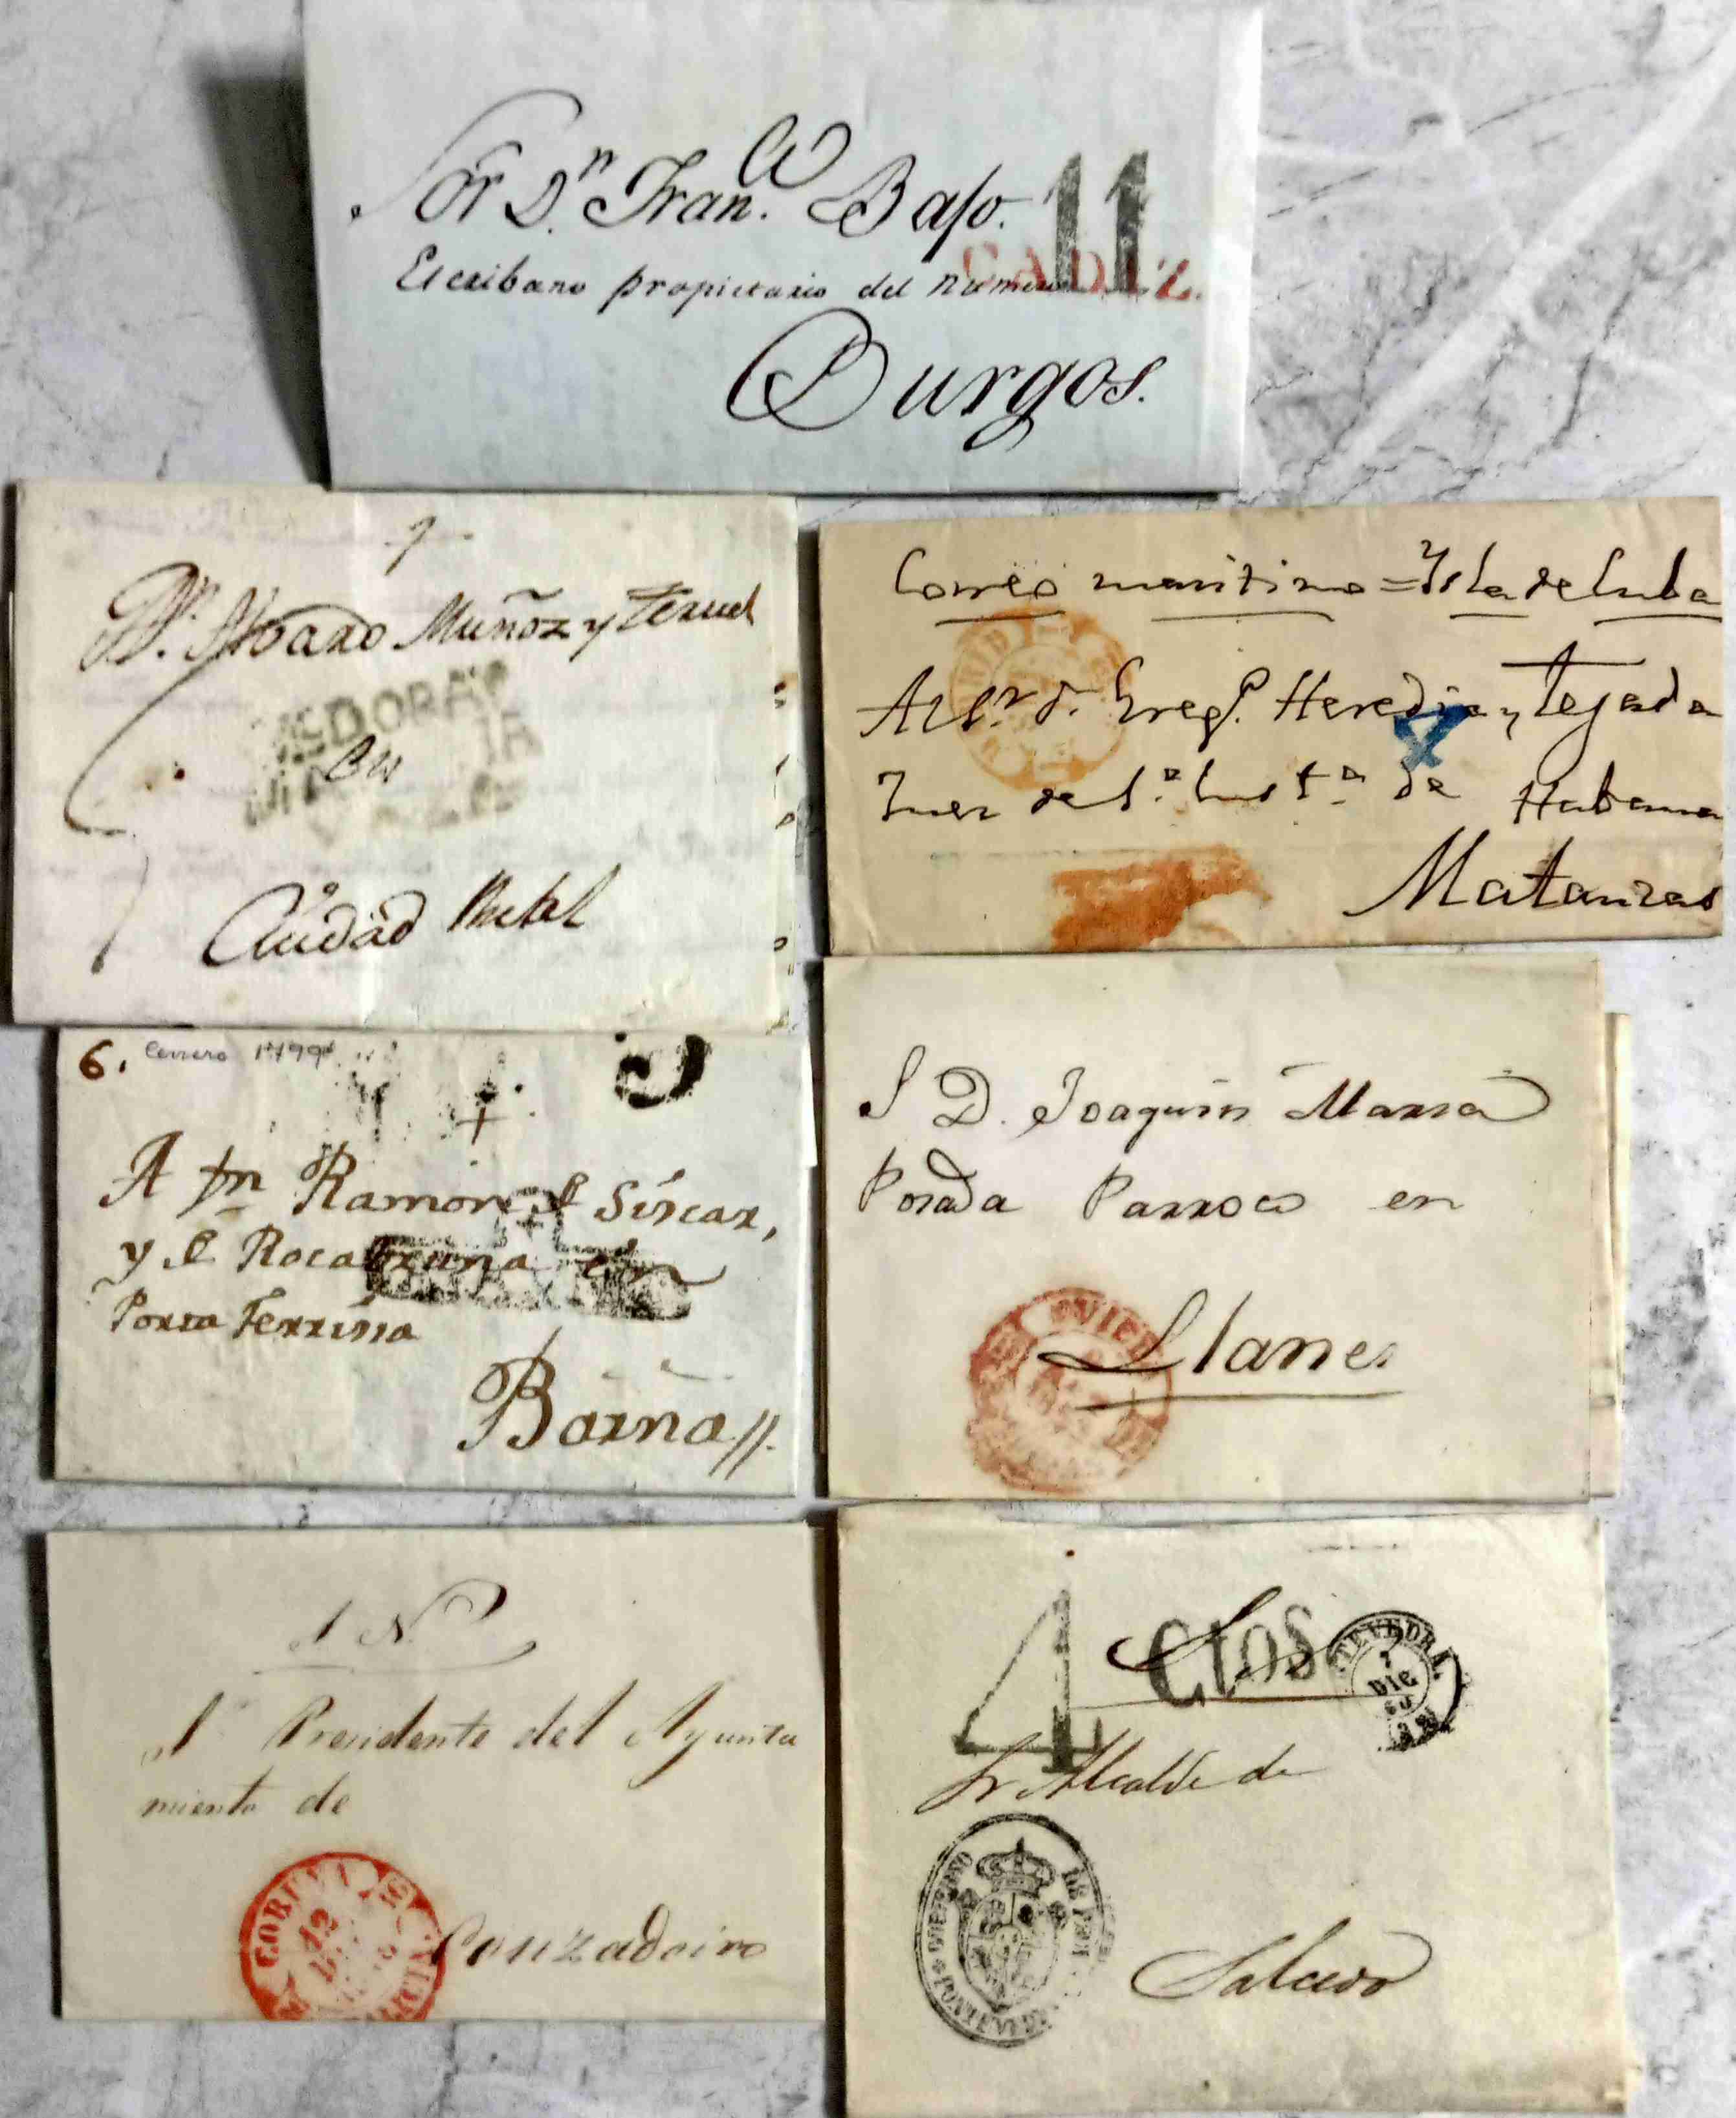 Sor Dn. Franco Baso.
11
CADIZ.
Escribano propietario del numero
Burgos.
Dn. Alvaro Muñoz y Teruel
Ciudad Real
Correo maritimo = Isla de Cuba
Al Sr. D. Gregº. Heredia y Tejada
Juez de 1.ª Instª de Habana
Matanzas
6. Enero 1799
A Dn Ramon de Siscar,
y de Rocabruna en
Porta Ferrissa
Barna
S D. Joaquin Maria
Posada Parroco en
Llanes
S. N.
Sr Presidente del Ayunta
miento de
CORUÑA
12
Conzadoiro
4 Ctos
TEVEDRA
7
DIC
Sr Alcalde de
GOBIERNO DE
PONTEVEDRA
Salcedo